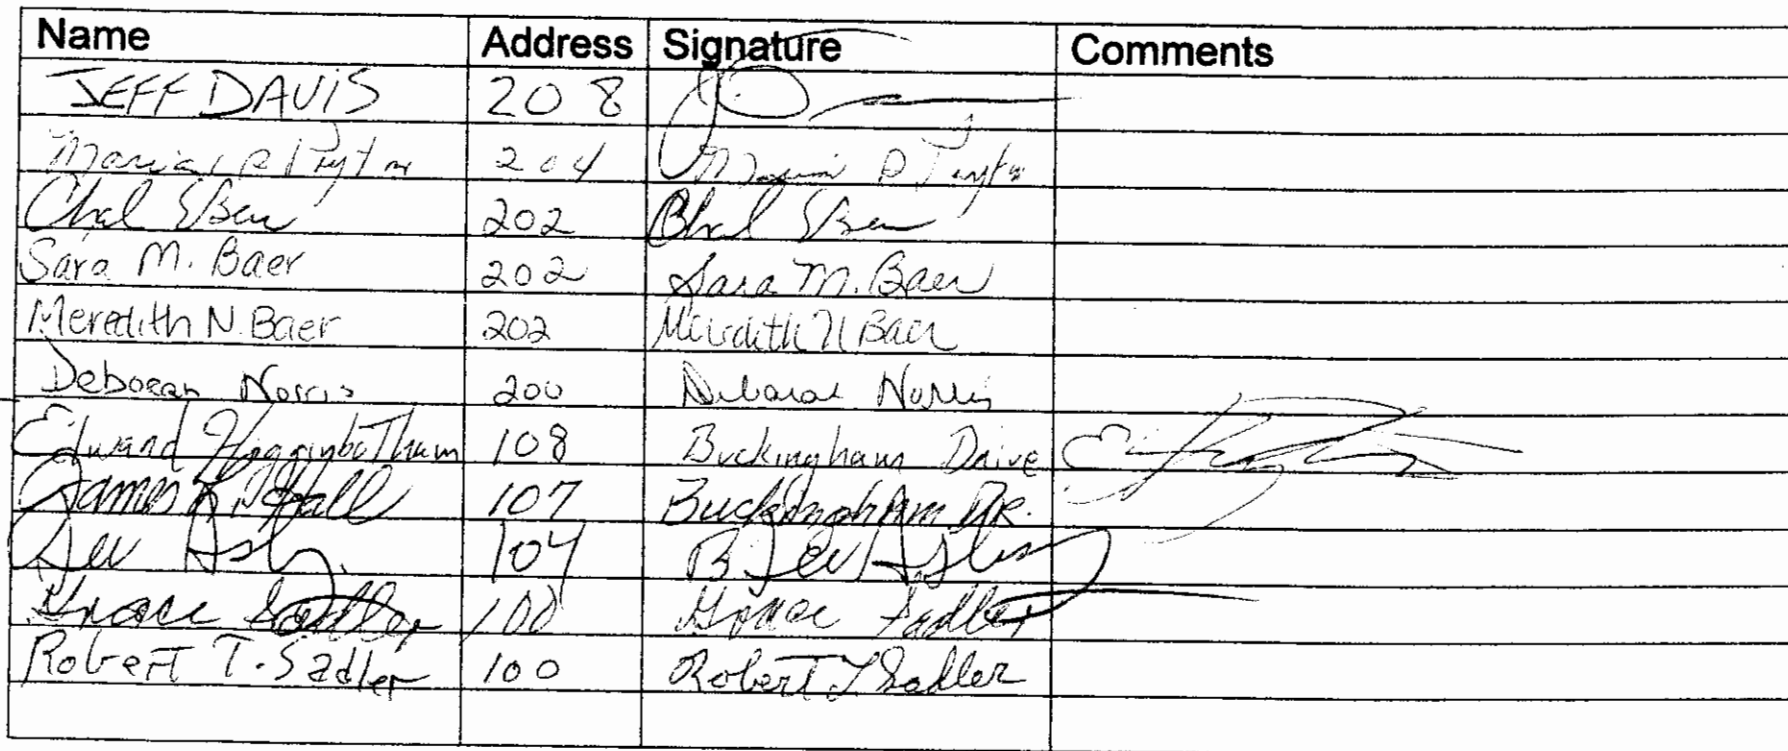 Name Address Signature Comments
JEFF DAVIS 208
204
202
Sara M. Baer 202 Sara M. Baer
Meredith N. Baer 202 Meredith N Baer
Deborah Norris 200 Deborah Norris
Edward Higginbotham 108 Buckingham Drive
James R. Hall 107 Buckingham DR.
104
Grace Sadler 100 Grace Sadler
Robert T. Sadler 100 Robert T Sadler